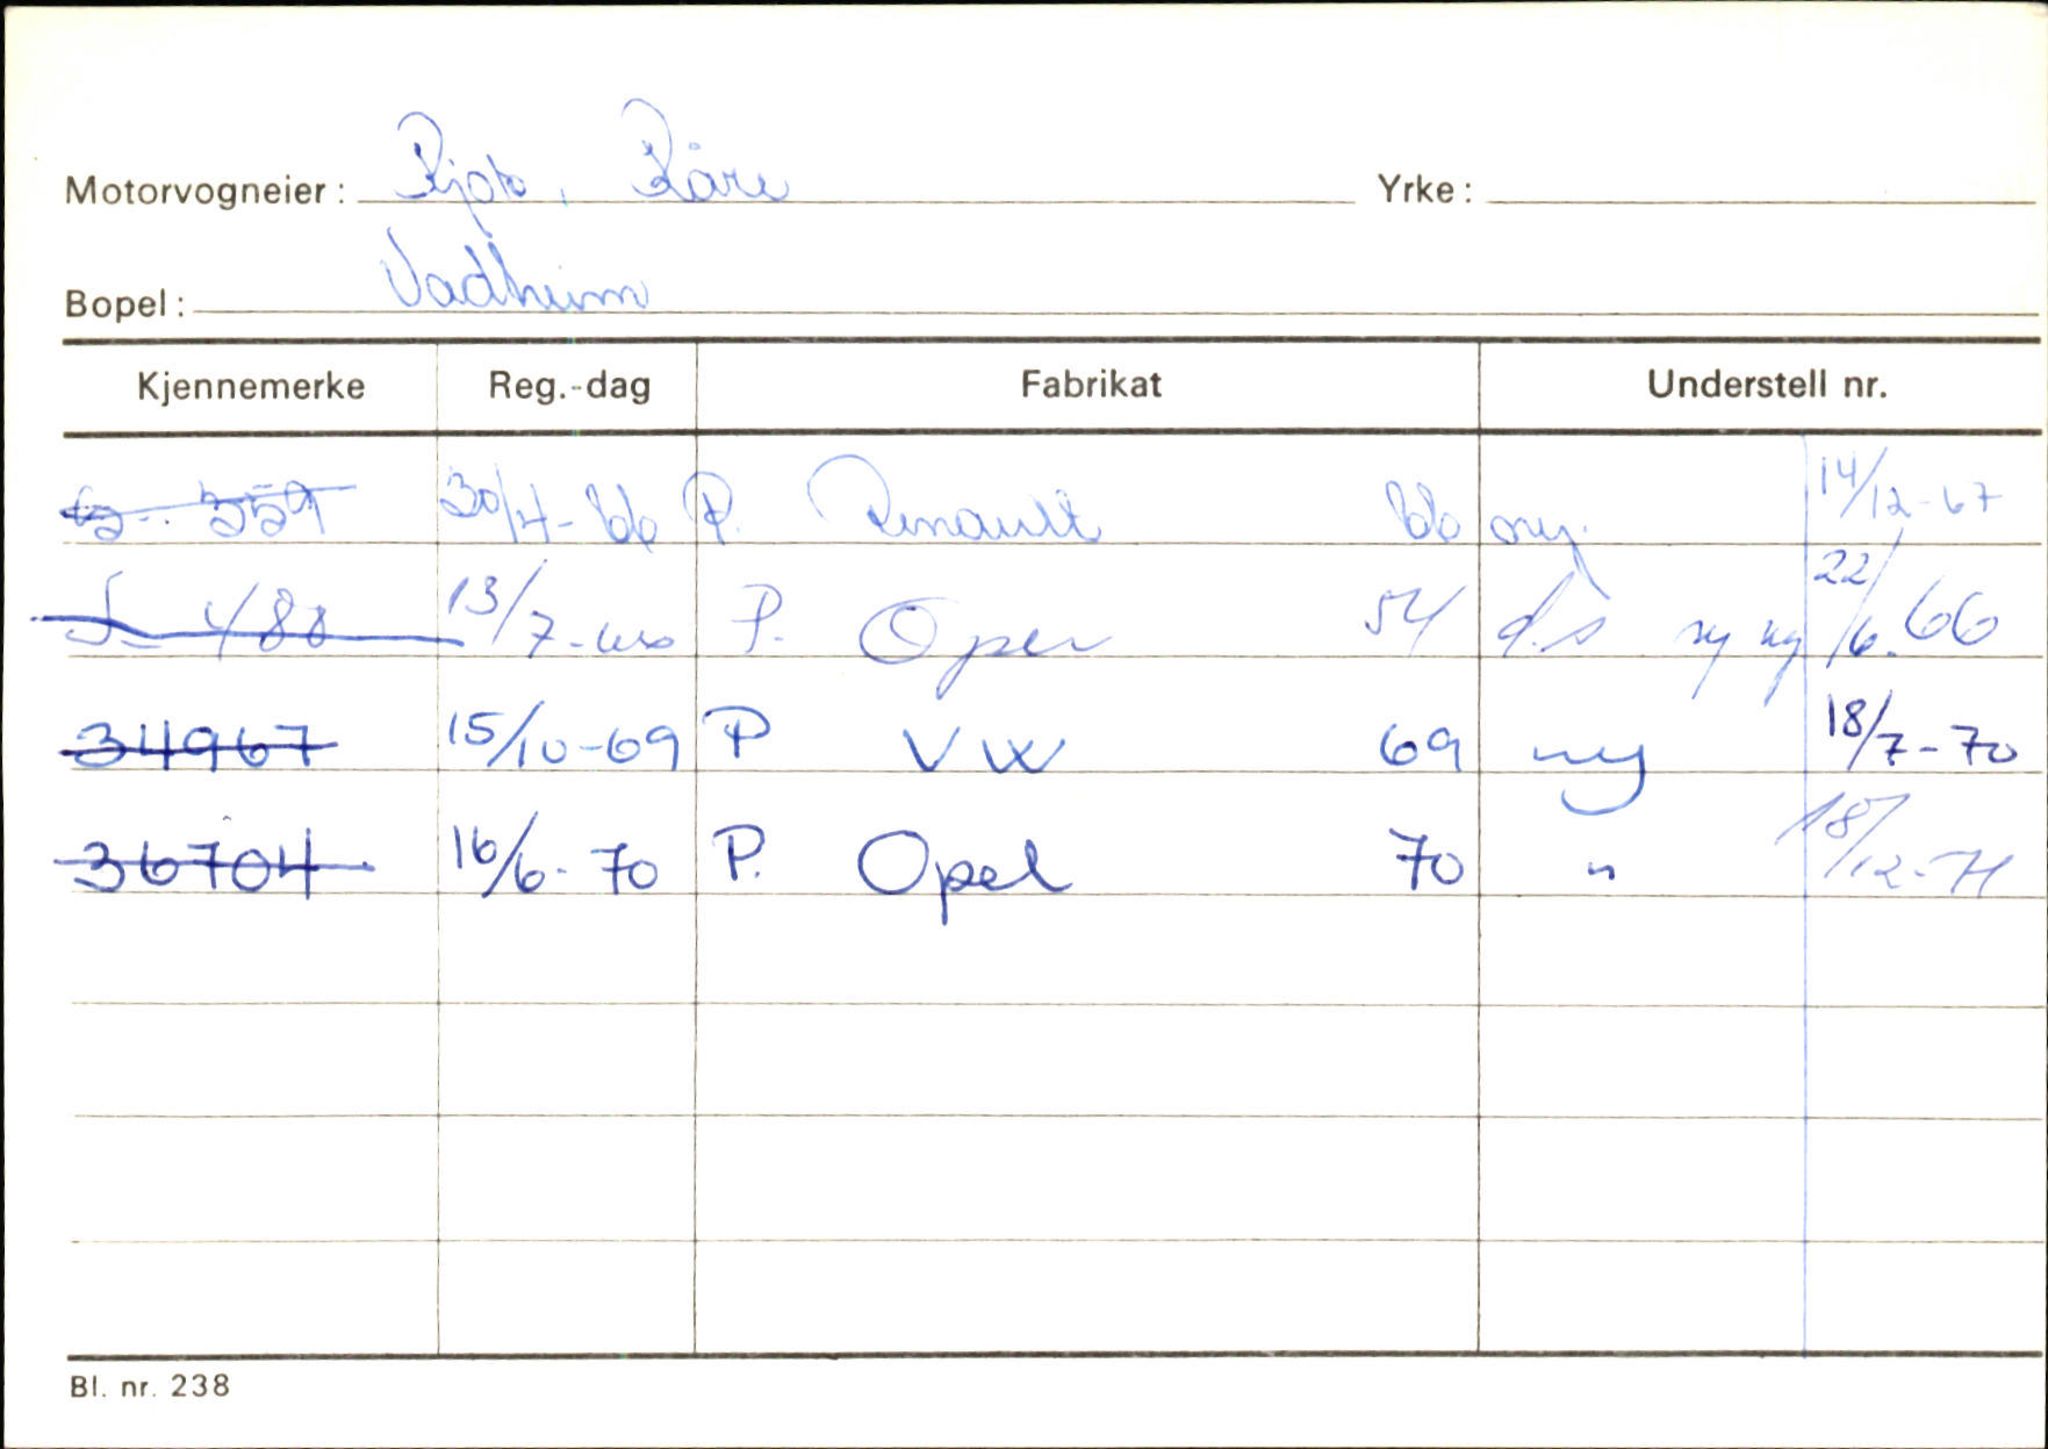 Motorvogneier: Kåre Yrke:
Bopel: Vadheim
Kjennemerke Reg.-dag Fabrikat Understell nr.
559 30/4-66 P. Renault 66 ny. 14/12-67
S- 488 13/7- P. Opel 54 d.s ny ny 22/6.66
34967 15/10-69 P VW 69 ny 18/7-70
36704 16/6-70 P. Opel 70 " 18/12-71
Bl. nr. 238